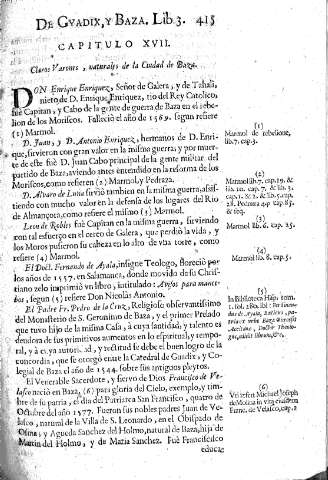 DE GVADIX, Y BAZA. Lib. 3. 415
CAPITULO XVII.
Claros Varones, naturales de la Ciudad de Baza.
DON Enrique Enriquez, Señor de Galera, y de Tahali,
nieto de D. Enrique Enriquez, tio del Rey Catolico,
fue Capitan, y Cabo de la gente de guerra de Baza en el rebe-
lion de los Moriscos. Falleciò el año de 1569. segun refiere
(1) Marmol.
D. Juan, y D. Antonio Enriquez, hermanos de D. Enri-
que, sirvieron con gran valor en la misma guerra, y por muer-
te de este fuè D. Juan Cabo principal de la gente militar del
partido de Baza, aviendo antes entendido en la reforma de los
Moriscos, como refieren (2) Marmol, y Pedraza.
D. Alvaro de Luna sirviò tambien en la misma guerra, asis-
tiendo con mucho valor en la defensa de los lugares del Rio
de Almançora, como refiere el mismo (3) Marmol.
Leon de Robles fuè Capitan en la misma guerra, sirviendo
con tal esfuerço en el cerco de Galera, que perdiò la vida, y
los Moros pusieron su cabeza en lo alto de vna torre, como
refiere (4) Marmol.
El Doct. Fernando de Ayala, insigne Teologo, floreciò por
los años de 1557. en Salamanca, donde movido de su Chris-
tiano zelo imprimiò vn libro, intitulado: Avisos para mance-
bos, segun (5) refiere Don Nicolàs Antonio.
El Padre Fr. Pedro de la Cruz, Religioso observantissimo
del Monasterio de S. Geronimo de Baza, y el primer Prelado
que tuvo hijo de la misma Casa, à cuya santidad, y talento es
deudora de sus primitivos aumentos en lo espiritual, y tempo-
ral, y à cuya autoridad, y rectitud se debe el buen logro de la
concordia, que se otorgò entre la Catedral de Guadix, y Co-
legial de Baza el año de 1544. sobre sus antiguos pleytos.
El Venerable Sacerdote, y siervo de Dios Francisco de Ve-
lasco naciò en Baza, (6) para gloria del Cielo, exemplo, y tim-
bre de su patria, el dia del Patriarca San Francisco, quatro de
Octubre del año 1577. Fueron sus nobles padres Juan de Ve-
lasco, natural de la Villa de S. Leonardo, en el Obispado de
Osma; y Agueda Sanchez del Holmo, natural de Baza, hija de
Martin del Holmo, y de Maria Sanchez. Fuè Francisco
educa-
(1)
Marmol de rebelione,
lib. 7. cap. 3.
(2)
Marmol lib. 7. cap. 19. &
(3)
(4)
Marmol lib. 8. cap.
(5)
In Biblioteca Hisp. tom.
(6)